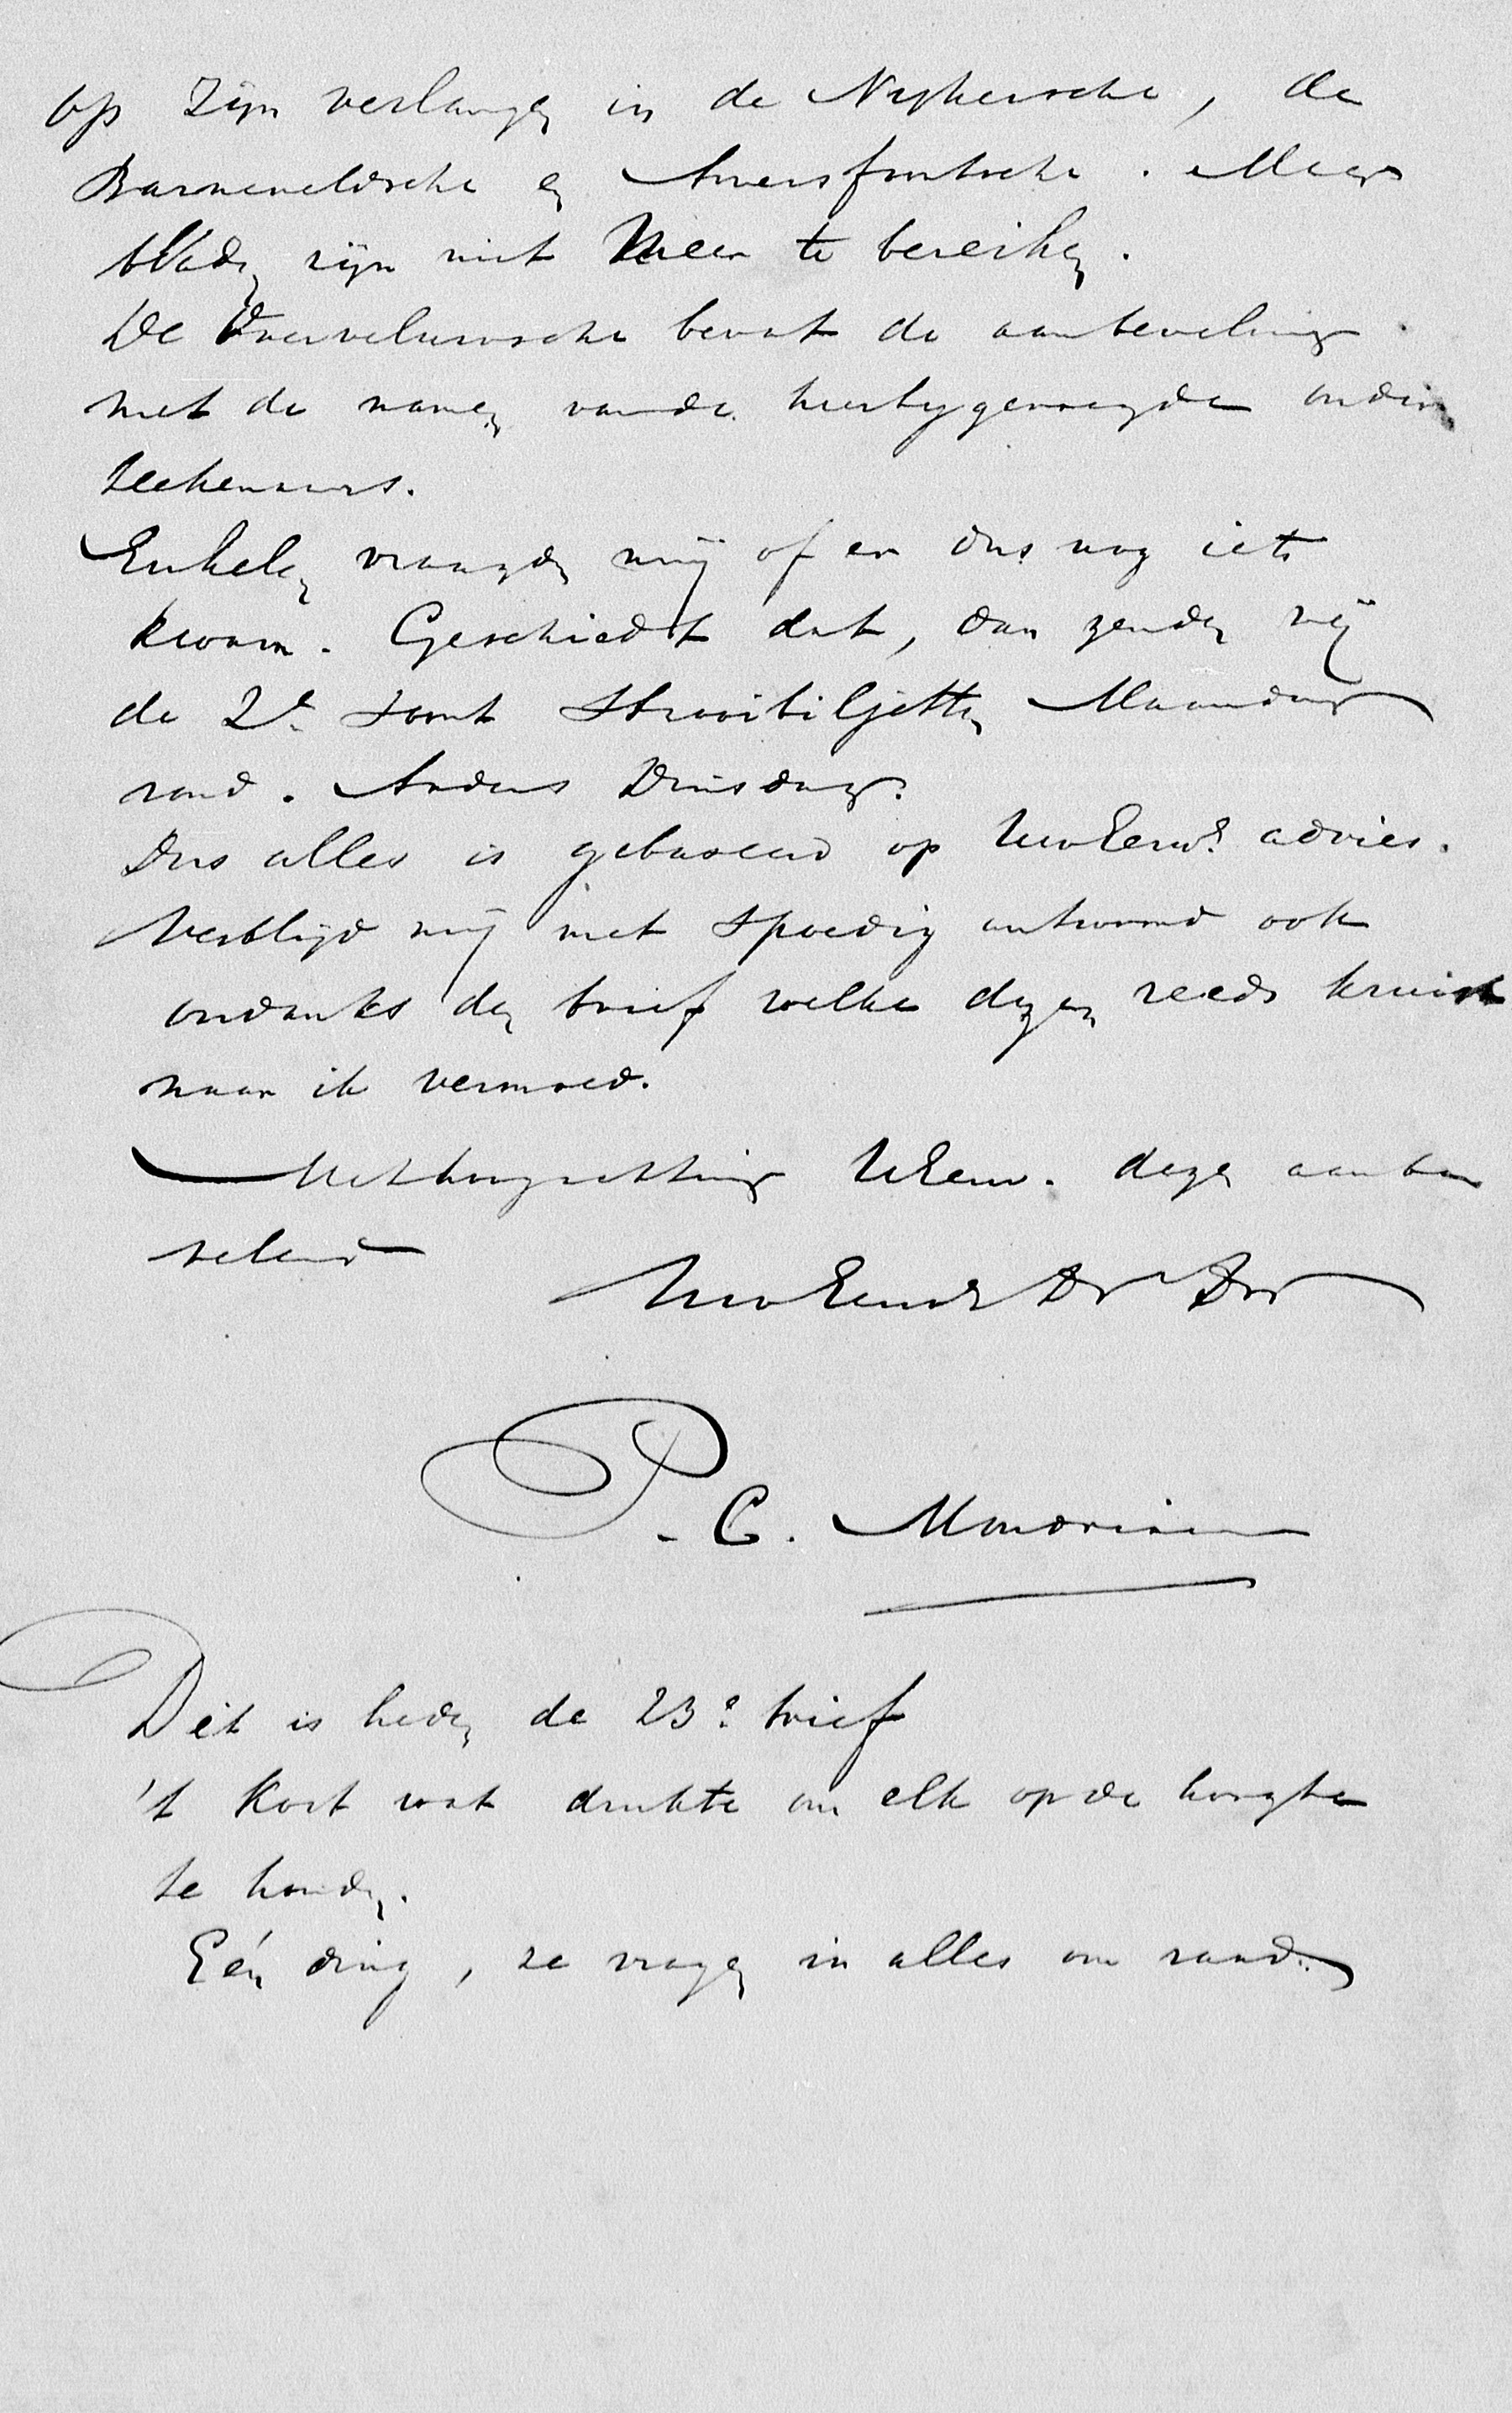 op zijn verlangen in de Nijkersche, de
Barneveldsche en Amersfoortsche. Meer
bladen zijn niet meer te bereiken.
De Overveluwsche bevat de aanbeveling
met de namen van de hierbygevoegde onder
teekenaars.
Enkelen vraagden mij of er dus nog iets
kwam. Geschiedt dat, dan zenden wij
de 2e soort Strooibiljetten Maandag
rond. Anders Dinsdag.
Dus alles is gebaseerd op UwEerw.s advies.
Verblijd mij met spoedig antwoord ook
ondanks den brief welke dezen reeds kruist
naar ik vermoed.
Met hoogachting UEerw. dezen aanbe
velend
UwEerws Dr Dr
P. C. Mondriaan
Dit is heden de 23e brief
't Kost wat drukte om elk op de hoogte
te houden.
Eén ding, ze vragen in alles om raad.